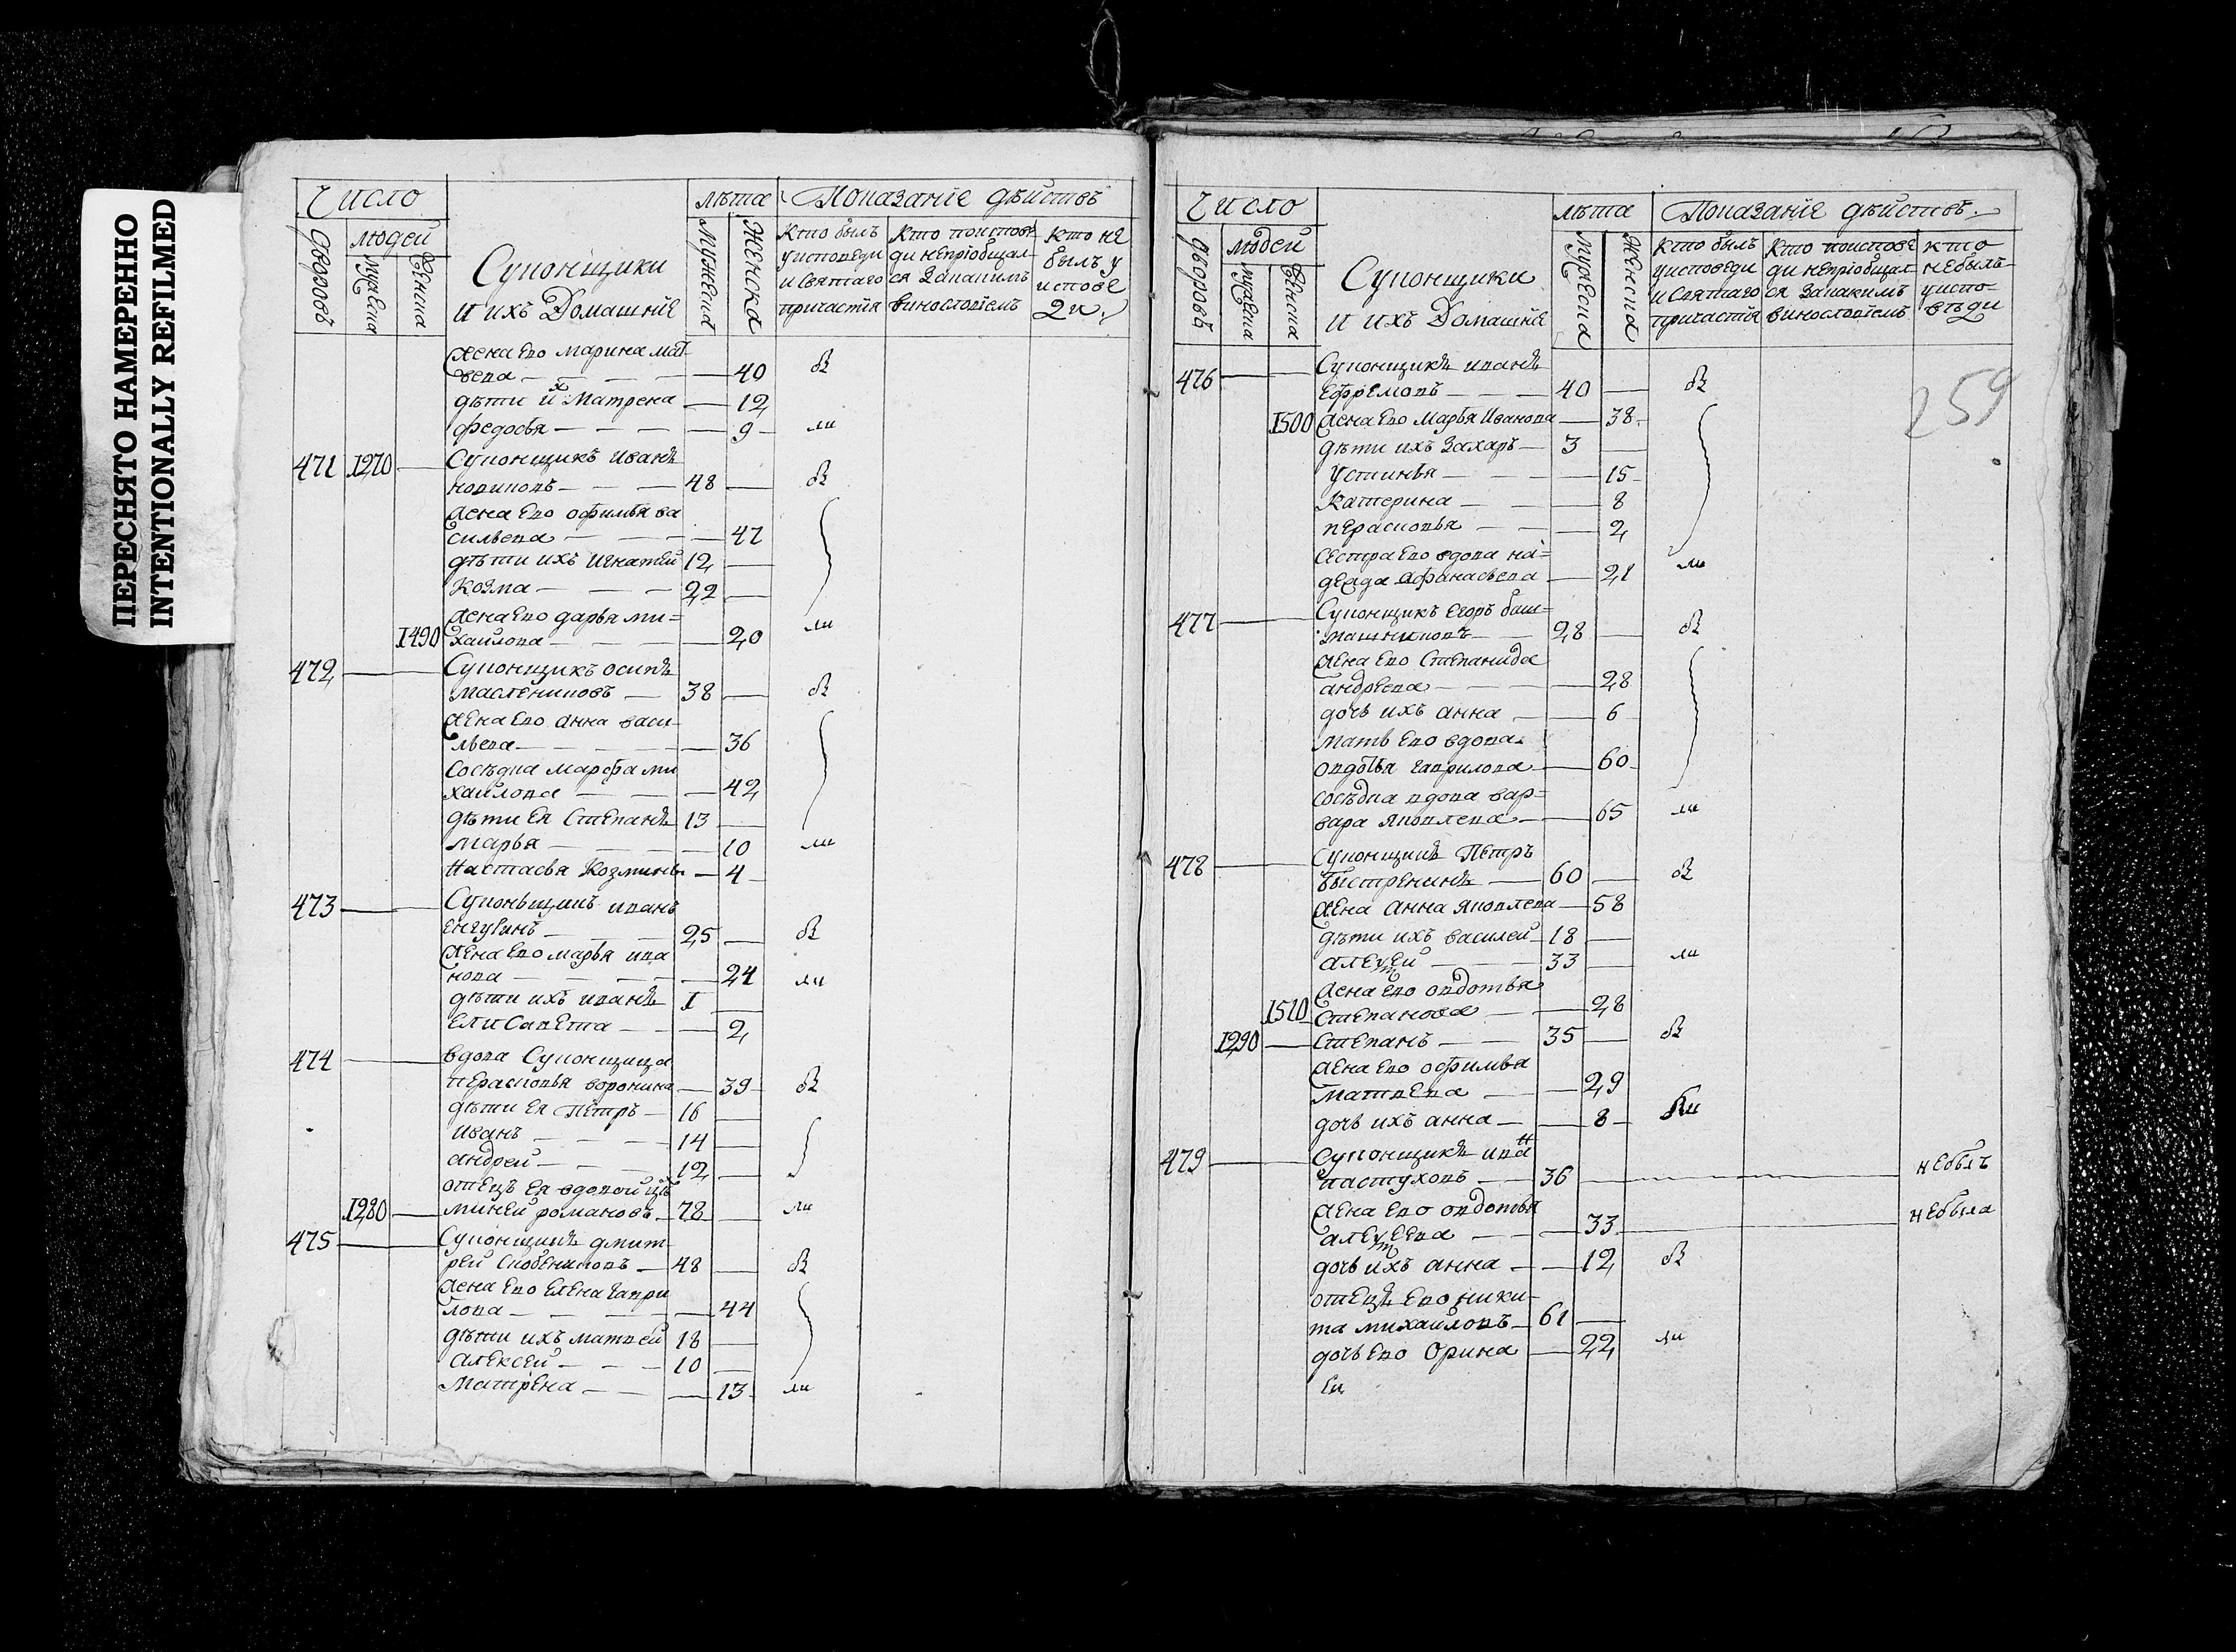 ПЕРЕСНЯТО НАМЕРЕННО
INTENTIONALLY REFILMED
Число
лѣта
Показание дѣйствъ
дворовъ
людей
мужеска
женска
Суконщики
и ихъ Домашние
Мужеска
Женска
кто былъ
у исповеди
и Святаго
причастия
кто исповѣ
ди неприобщал
ся за каким
винословием
кто не
былъ у
испове
ди
жена ево Марина Мат
веева — 40 в
дѣти их Матрена — 12
Федосья — 9 — ли
471 1270 — Суконщикъ Иванъ
новиковъ — 48 — в
жена ево офимья ва
сильева — 47
дѣти ихъ Игнатей 12 —
козма — 22 —
жена ево дарья ми=
1490 хаилова — 20 ли
472 — Суконщикъ осипъ
маслениковъ — 38 — в
жена ево анна васи
льева — 36
Сосѣдка марфа ми
хаилова — 42
дѣти ея Степанъ 13 —
марья — 10 ли
Настасья Козмина — 4
473 — Суконьщикъ иванъ
— 25 — в
жена ево марья ива
нова — 24 ли
дѣти ихъ иванъ 1 —
елисавета — 2
474 — вдова Суконщица
перасковья воронина — 39 в
дѣти ея Петръ — 16 —
иванъ — 14 —
андрей — 12 —
отецъ ея вдовой
1280 — миней романовъ — 78 — ли
475 — Суконщикъ дмит
рей — 48 — в
жена ево елена гаври
лова — 44
дѣти ихъ матвей 18 —
алексей — 10 —
Матрена — 13 ли
Число
лѣта
Показание дѣйствъ
дворовъ
людей
мужеска
женска
Суконщики
и ихъ Домашние
Мужеска
Женска
кто былъ
у исповеди
и Святаго
причастия
кто исповѣ
ди неприобщал
ся за каким
винословием
кто
небылъ
у испо-
вѣди
259
476 — Суконщикъ иванъ
ефремовъ — 40 — в
1500 жена ево Марья Иванова — 38
дѣти ихъ Захаръ — 3 —
устинья — 15
Катерина — 8
перасковья — 2
сестра ево вдова на=
дежда афанасьева — 21 ли
477 — Суконщикъ егоръ баш=
машниковъ — 28 — в
жена ево Степанида
андреева — 28
дочь ихъ анна — 6
мать ево вдова
овдотья гаврилова — 60
сосѣдка вдова вар=
вара яковлева — 65 ли
478 — Суконщикъ Петръ
быстренинъ — 60 — в
жена анна яковлева — 58
дѣти ихъ василей — 18 —
алексей — 33 — ли
жена ево овдотья
1510 Степанова — 28
1290 — Степанъ — 35 — в
жена ево офимья
матвева — 29
дочь ихъ анна — 8 ли
479 — Суконщикъ иван
пастуховъ — 36 — небылъ
жена ево овдотья
алексеева — 33 — небыла
дочь ихъ анна — 12 в
отецъ ево ники-
та михаиловъ — 61 —
дочь ево Орина — 22 ли